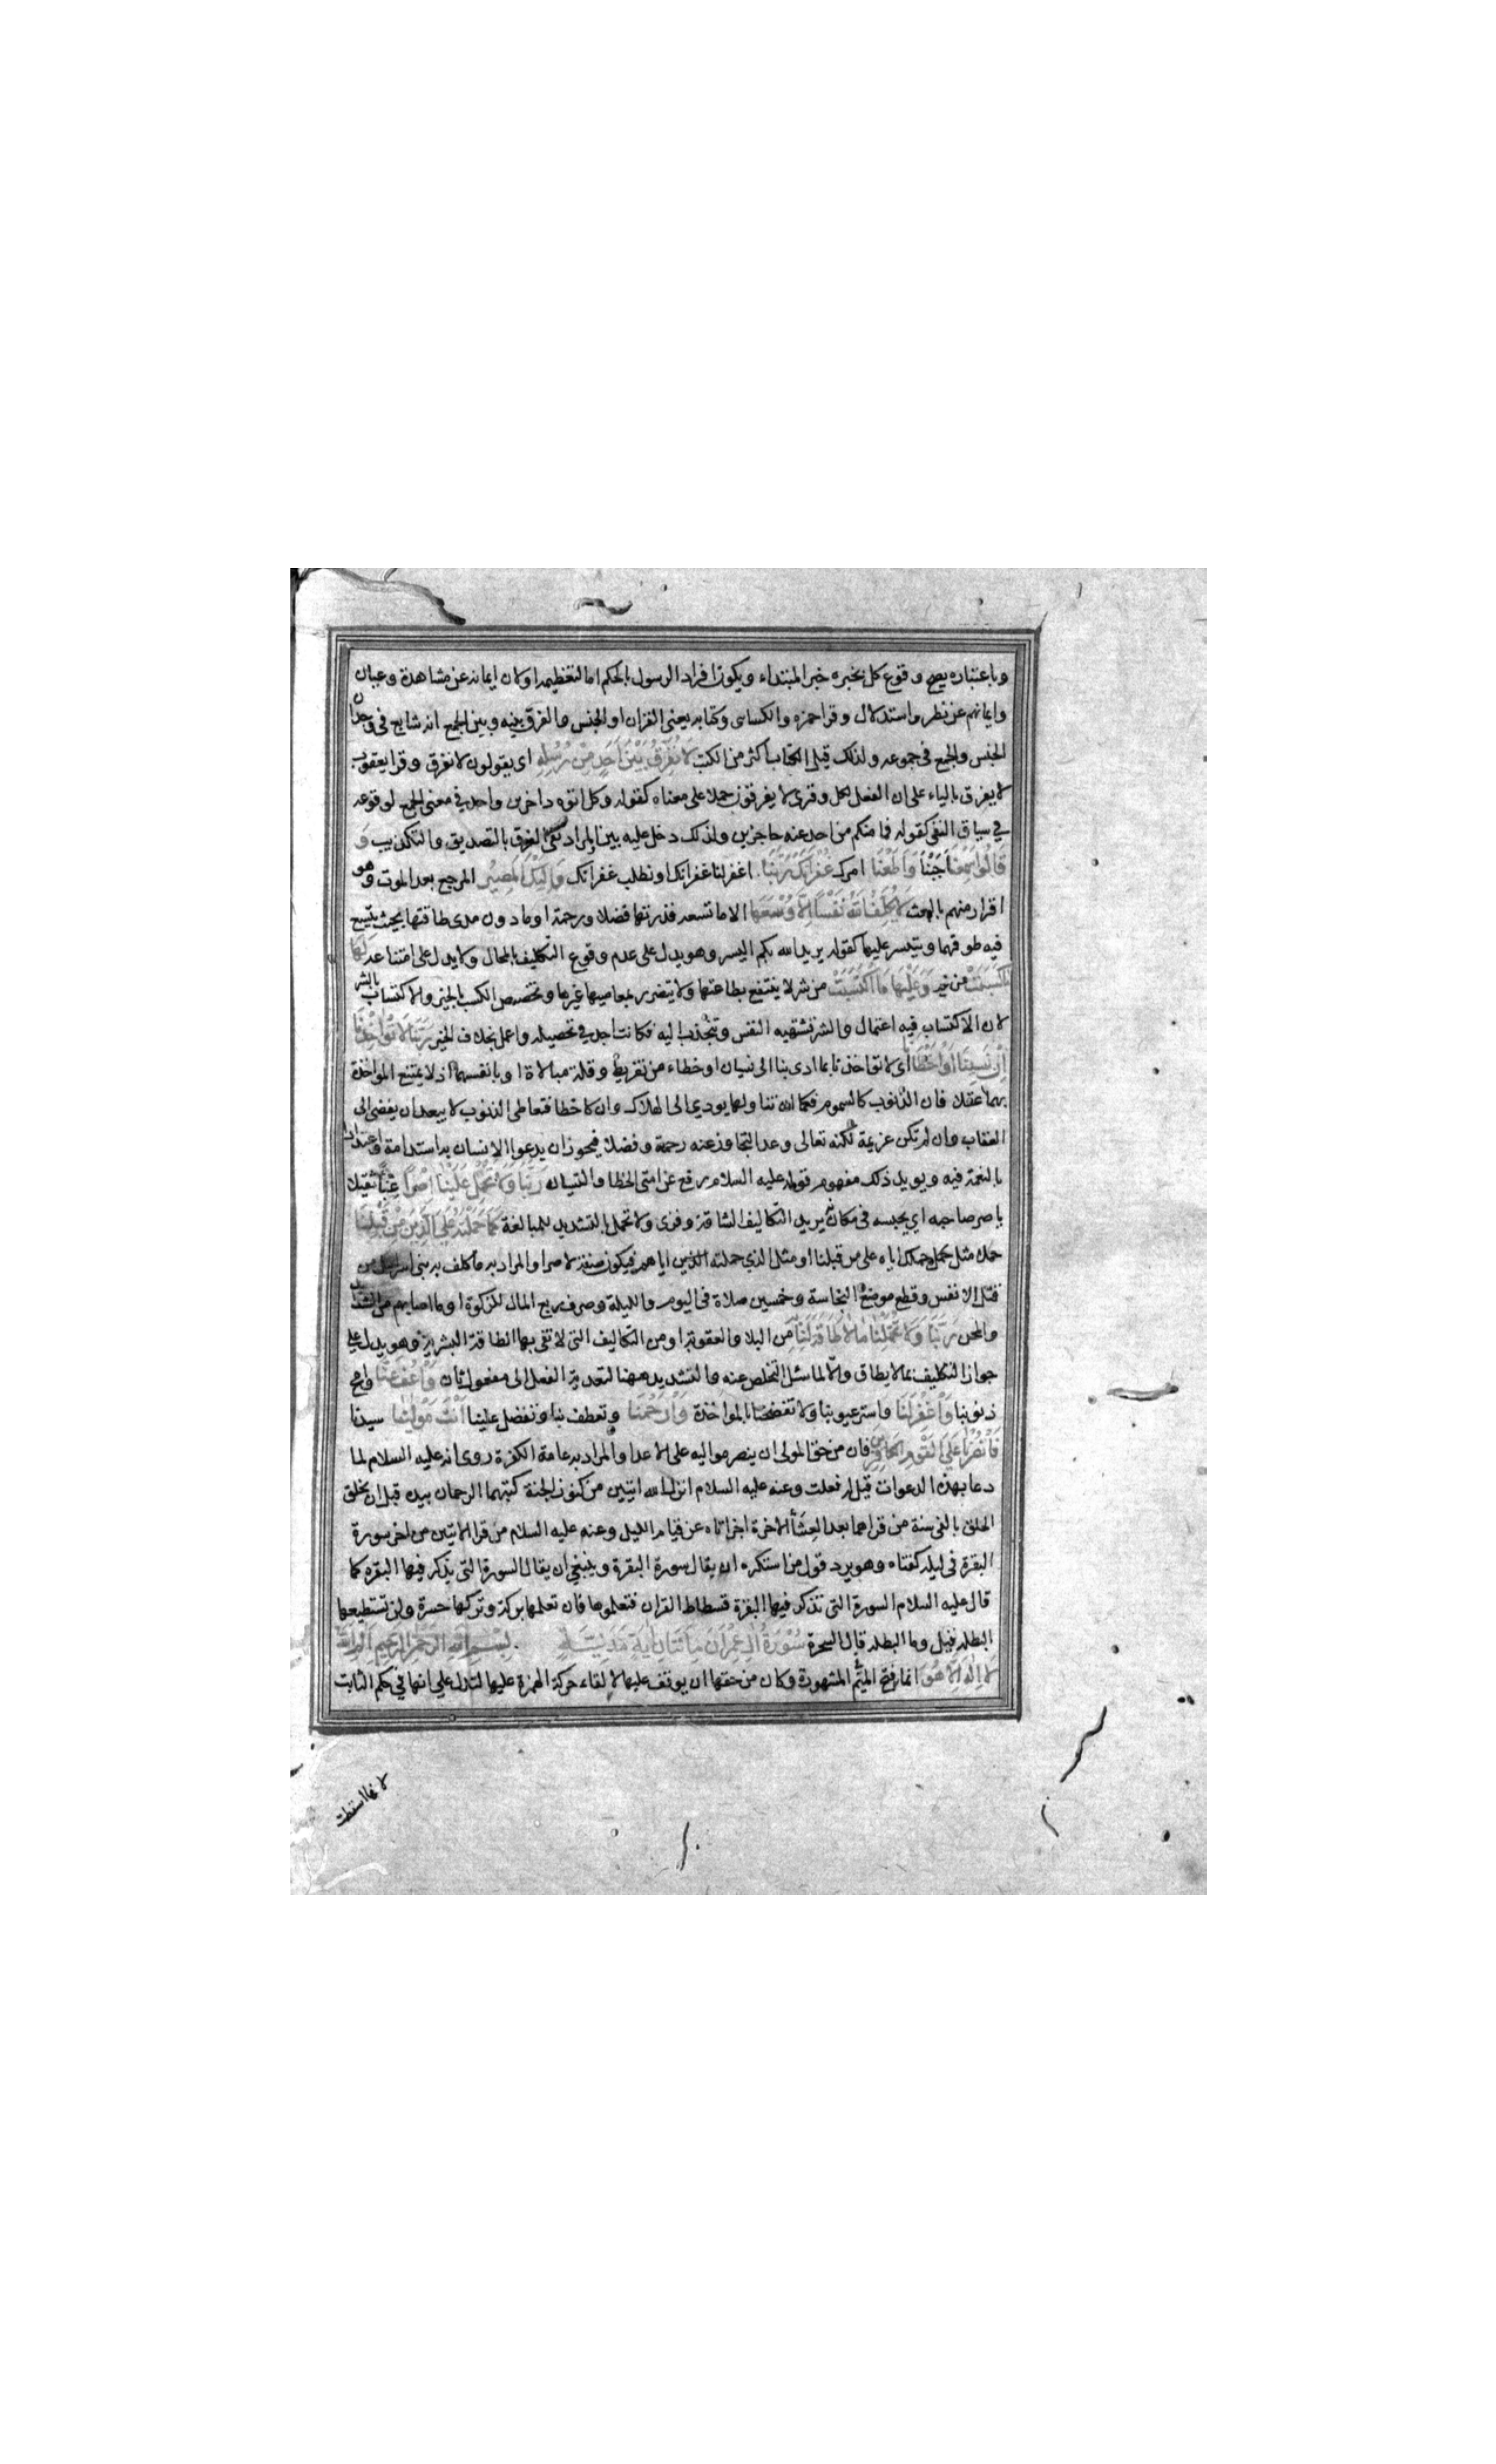 وباعتباره يصح وقوع كل بخبره خبر المبتداء ويكون افراد الرسول بالحكم اما لتعظيمه او لان ايمانه عن مشاهدة وعيان
وايمانهم عن نظر واستدلال وقرا حمزه والكساى وكتابه يعنى القران او الجنس والفرق بينه وبين الجمع انه شايع فى وحدان
الجنس والجمع فى جموعه ولذلك قيل الكتاب اكثر من الكتب لَا نُفَرِّقُ بَيْنَ اَحَدٍ مِنْ رُسُلِهِ اى يقولون لا نفرق وقرا يعقوب
لا يفرق بالياء على ان الفعل لكل وقرى لا يفرقون حملا على معناه كقوله وكل اتوه داخرين واحد في معنى الجمع لوقوعه
في سياق النفى كقوله فما منكم من احد عنه حاجزين ولذلك دخل عليه بين والمراد نفى الفرق بالتصديق والتكذيب وَ
قَالُوا سَمِعْنَا اجبنا وَاَطَعْنَا امرك غُفْرَانَكَ رَبَّنَا اغفر لنا غفرانك او نطلب غفرانك وَاِلَيْكَ الْمَصِيْرُ المرجع بعد الموت وهو
اقرار منهم بالبعث لَا يُكَلِّفُ اللّٰهُ نَفْسًا اِلَّا وُسْعَهَا الا ما تسعه قدرتها فضلا ورحمة او ما دون مدى طاقتها بحيث يتسع
فيه طوقهما ويتيسر عليها كقوله يريد الله بكم اليسر وهو يدل على عدم وقوع التكليف بالمحال ولا يدل على امتناعه لَهَا
مَا كَسَبَتْ من خير وَعَلَيْهَا مَا اكْتَسَبَتْ من شر لا ينتفع بطاعتها ولا يتضرر بمعاصيها غيرها وتخصيص الكسب بالخير والاكتساب بالشر
لان الاكتساب فيه اعتمال والشر تشتهيه النفس وتنجذب اليه فكانت اجد في تحصيله واعمل بخلاف الخير رَبَّنَا لَا تُؤَاخِذْنَا
اِنْ نَسِيْنَا اَوْ اَخْطَأْنَا اى لا تواخذنا بما ادى بنا الى نسيان او خطاء من تفريط وقلة مبالاة او بانفسهما اذ لا يمتنع المواخذة
بهما عقلا فان الذنوب كالسموم فكما ان تناولها يودي الى الهلاك وان كا خطا فتعاطى الذنوب لا يبعد ان يفضى الى
العقاب وان لم تكن عزيمة لكنه تعالى وعد التجاوز عنه رحمة وفضلا فيجوز ان يدعوا الانسان به استدامة واعتدادا
بالنعمة فيه ويويد ذلك مفهوم قوله عليه السلام رفع عن امتى الخطا والنسيان رَبَّنَا وَلَا تَحْمِلْ عَلَيْنَا اِصْرًا عبئا ثقيلا
ياصر صاحبه اي يحبسه فى مكانه يريد التكاليف الشاقة وقرى ولا تحمل بالتشديد للمبالغة كَمَا حَمَلْتَهُ عَلَى الَّذِيْنَ مِنْ قَبْلِنَا
حملا مثل حملك اياه على من قبلنا او مثل الذي حملته اياهم فيكون صفة لاصرا والمراد به ما كلف به بنى اسرايل من
قتل الانفس وقطع موضع النجاسة وخمسين صلاة فى اليوم والليلة وصرف ربع المال للزكوة او ما اصابهم من الشدايد
والمحن رَبَّنَا وَلَا تُحَمِّلْنَا مَا لَا طَاقَةَ لَنَا بِهِ من البلا والعقوبة او من التكاليف التى لا تفى بها الطاقة البشرية وهو يدل على
جواز التكليف بما لا يطاق والا لما سئل التخلص عنه والتشديد ههنا لتعدية الفعل الى مفعول ثان وَاعْفُ عَنَّا وامح
ذنوبنا وَاغْفِرْ لَنَا واستر عيوبنا ولا تفضحنا بالمواخذة وَارْحَمْنَا وتعطف بنا وتفضل علينا اَنْتَ مَوْلٰنَا سيدنا
فَانْصُرْنَا عَلَى الْقَوْمِ الْكَافِرِيْنَ فان من حق المولى ان ينصر مواليه على الاعدا والمراد به عامة الكفرة روى انه عليه السلام لما
دعا بهذه الدعوات قيل له فعلت وعنه عليه السلام انزل الله ايتين من كنوز الجنة كتبهما الرحمان بيده قبل ان يخلق
الخلق بالفى سنة من قراهما بعد العشآ الاخرة اجزاتاه عن قيام الليل وعنه عليه السلام من قرا الايتين من اخر سورة
البقرة فى ليله كفتاه وهو يرد قول من استكره ان يقال سورة البقرة وينبغى ان يقال السورة التى يذكر فيها البقره كما
قال عليه السلام السورة التى تذكر فيها البقرة فسطاط القران فتعلموها فان تعلمها بركة وتركها حسرة ولن تستطيعها
البطله قيل وما البطله قال السحرة سُوْرَةُ اٰلِ عِمْرَانَ مِائَتَانِ اٰيَةٍ مَدَنِيَّةٌ بِسْمِ اللّٰهِ الرَّحْمٰنِ الرَّحِيْمِ الم اللّٰهُ
لَا اِلٰهَ اِلَّا هُوَ انما فتح الميم المشهورة وكان من حقها ان يوقف عليها لالقاء حركة الهمزة عليها لتدل علي انها في حكم الثابت
لانها اسقطت